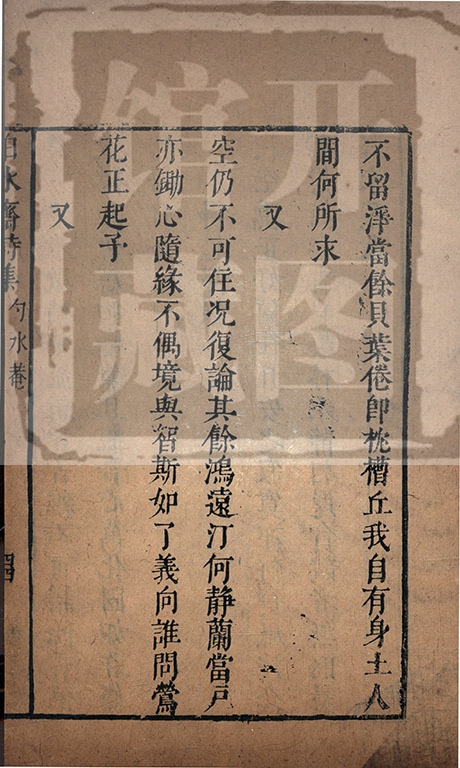 不留淨當餘貝葉倦即枕糟丘我自有身土人
間何所求
又
空仍不可住况復論其餘鴻遠汀何静蘭當戸
亦鋤心隨緣不偶境與智斯如了義向誰問鶯
花正起予
又
白水齋詩集 勺水菴 四
开图馆藏